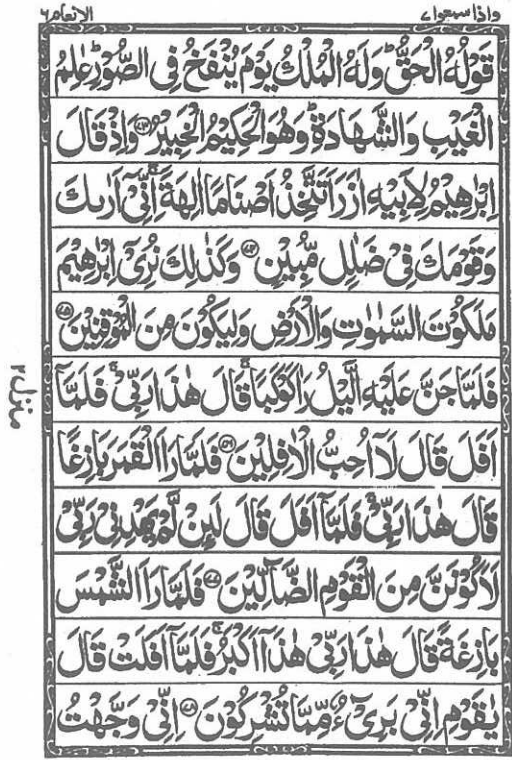 واذا سمعوا ٧ الانعام ٦
قَوْلُهُ الْحَقُّ ؕ وَلَهُ الْمُلْكُ يَوْمَ يُنْفَخُ فِى الصُّوْرِ ؕ عٰلِمُ
الْغَيْبِ وَالشَّهَادَةِ ؕ وَهُوَ الْحَكِيْمُ الْخَبِيْرُ ﴿۷۳﴾ وَاِذْ قَالَ
اِبْرٰهِيْمُ لِاَبِيْهِ اٰزَرَ اَتَتَّخِذُ اَصْنَامًا اٰلِهَةً ۚ اِنِّىْۤ اَرٰىكَ
وَقَوْمَكَ فِىْ ضَلٰلٍ مُّبِيْنٍ ﴿۷۴﴾ وَكَذٰلِكَ نُرِىْۤ اِبْرٰهِيْمَ
مَلَكُوْتَ السَّمٰوٰتِ وَالْاَرْضِ وَلِيَكُوْنَ مِنَ الْمُوْقِنِيْنَ ﴿۷۵﴾
فَلَمَّا جَنَّ عَلَيْهِ الَّيْلُ رَاٰ كَوْكَبًا ۚ قَالَ هٰذَا رَبِّىْ ۚ فَلَمَّاۤ
اَفَلَ قَالَ لَاۤ اُحِبُّ الْاٰفِلِيْنَ ﴿۷۶﴾ فَلَمَّا رَاَ الْقَمَرَ بَازِغًا
قَالَ هٰذَا رَبِّىْ ۚ فَلَمَّاۤ اَفَلَ قَالَ لَئِنْ لَّمْ يَهْدِنِىْ رَبِّىْ
لَاَكُوْنَنَّ مِنَ الْقَوْمِ الضَّآلِّيْنَ ﴿۷۷﴾ فَلَمَّا رَاَ الشَّمْسَ
بَازِغَةً قَالَ هٰذَا رَبِّىْ هٰذَاۤ اَكْبَرُ ۚ فَلَمَّاۤ اَفَلَتْ قَالَ
يٰقَوْمِ اِنِّىْ بَرِىْٓءٌ مِّمَّا تُشْرِكُوْنَ ﴿۷۸﴾ اِنِّىْ وَجَّهْتُ
منزل ٢